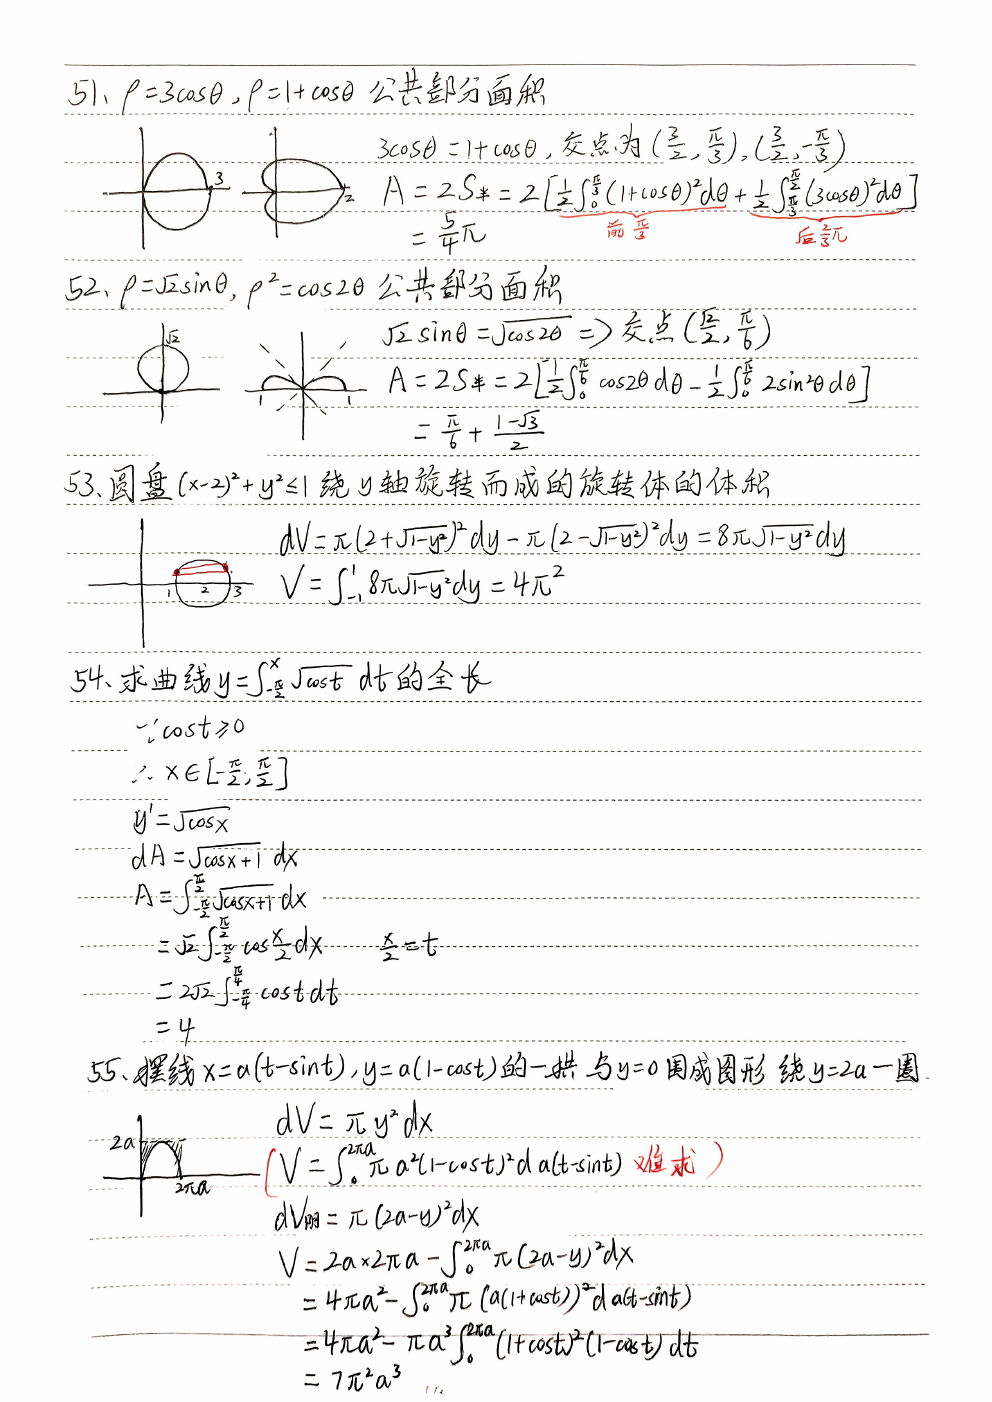 51、ρ=3cosθ, ρ=1+cosθ 公共部分面积
3cosθ=1+cosθ, 交点为(3/2, π/3), (3/2, -π/3)
3
2
A=2S半=2[1/2∫_0^{π/3}(1+cosθ)²dθ+1/2∫_{π/3}^{π/2}(3cosθ)²dθ]
前π/3 后2/3π
=5/4π
52、ρ=√2sinθ, ρ²=cos2θ 公共部分面积
√2
√2sinθ=√cos2θ => 交点(√2/2, π/6)
1 1
A=2S半=2[1/2∫_0^{π/6}cos2θdθ-1/2∫_0^{π/6}2sin²θdθ]
=π/6+(1-√3)/2
53、圆盘(x-2)²+y²≤1绕y轴旋转而成的旋转体的体积
dV=π(2+√1-y²)²dy-π(2-√1-y²)²dy=8π√1-y²dy
1 2 3
V=∫_{-1}^{1}8π√1-y²dy=4π²
54、求曲线y=∫_{-π/2}^{x}√cost dt的全长
∵cost≥0
∴x∈[-π/2, π/2]
y'=√cosx
dA=√cosx+1 dx
A=∫_{-π/2}^{π/2}√cosx+1 dx
=√2∫_{-π/2}^{π/2}cos x/2 dx x/2=t
=2√2∫_{-π/4}^{π/4}costdt
=4
55、摆线x=a(t-sint), y=a(1-cost)的一拱与y=0围成图形 绕y=2a一圈
dV=πy²dx
2a
2πa
(V=∫_0^{2πa}πa²(1-cost)²da(t-sint) 难求)
dV阴=π(2a-y)²dx
V=2a×2πa-∫_0^{2πa}π(2a-y)²dx
=4πa²-∫_0^{2πa}π(a(1+cost))²da(t-sint)
=4πa²-πa³∫_0^{2πa}(1+cost)²(1-cost)dt
=7π²a³